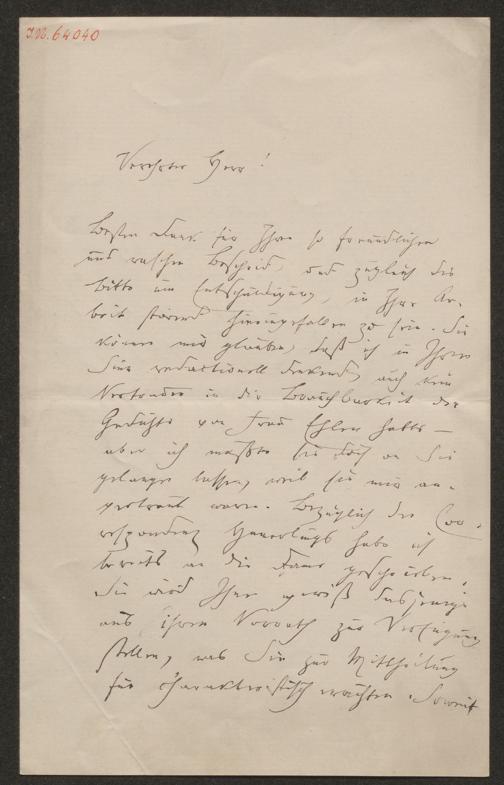 J.N. 64040
Verehrter Herr!
Besten Dank für Ihren so freundlichen
und raschen Bescheid, und zugleich die
Bitte um Entschuldigung, in Ihre Ar-
beit störend hineingefallen zu sein. Sie
können mir glauben, daß ich in Ihrem
Sinn redactionell denkend, auch kein
Vertrauen in die Brauchbarkeit der
Gedichte von Frau Ehlen hatte —
aber ich mußte sie doch an Sie
gelangen lassen, weil sie mir an-
vertraut waren. Bezüglich der Cor-
respondenz habe ich
bereits an die Dame geschrieben.
Sie wird Ihnen gewiß dasjenige
aus ihrem Vorrath zur Verfügung
stellen, was Sie zur Mittheilung
für charakteristisch erachten. Soweit